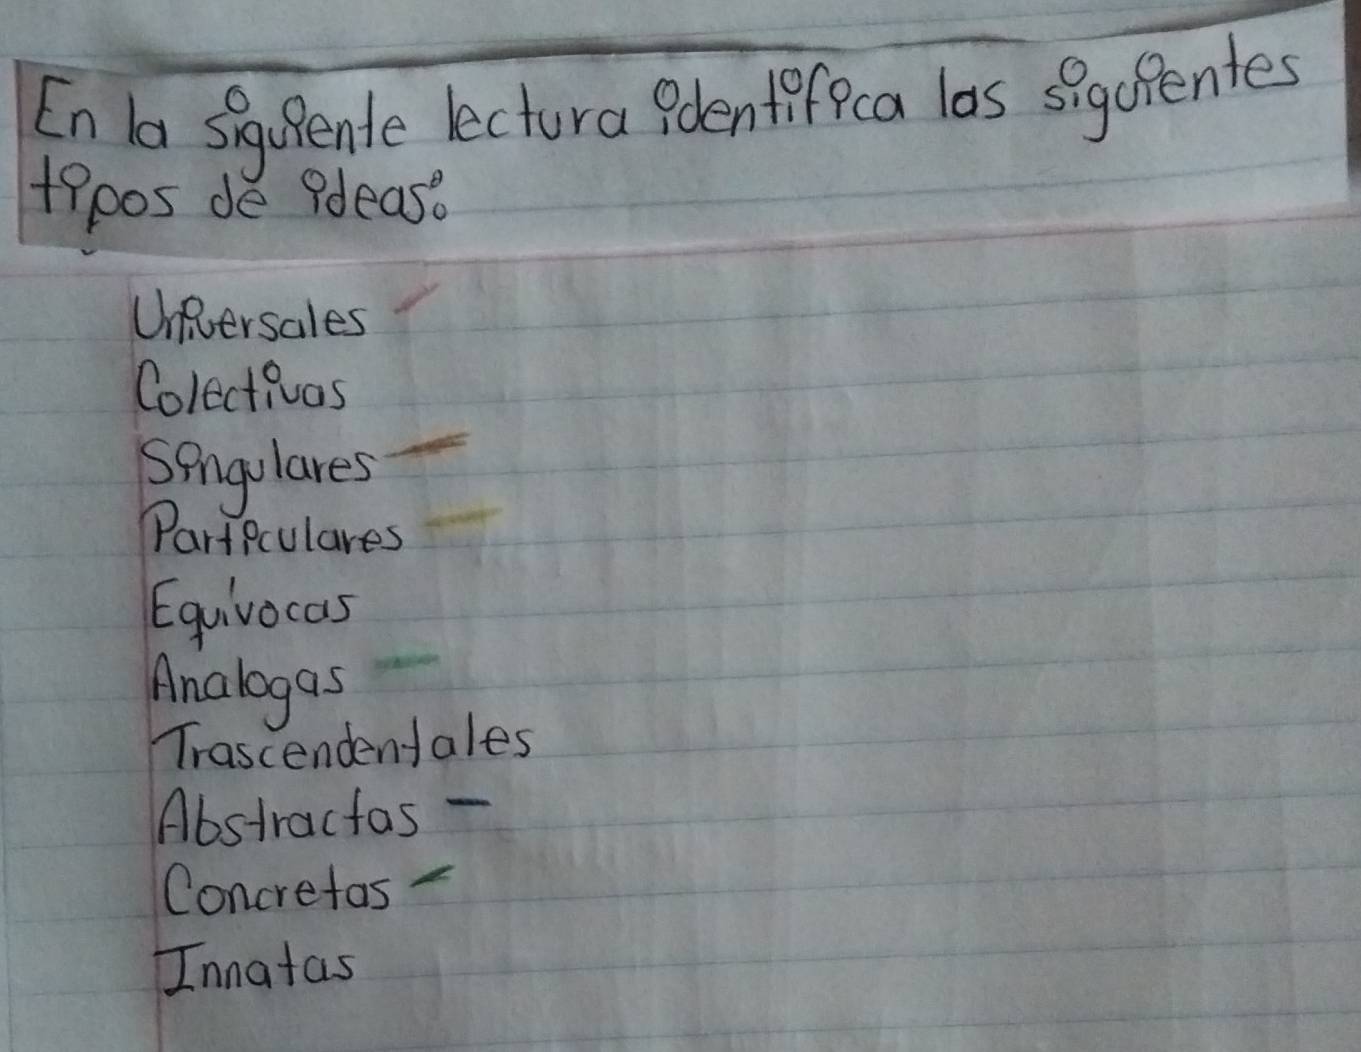 En la siguiente lectura identifica las siguientes
tipos de ideas:
Universales
Colectivas
Singulares
Particulares
Equívocas
Analogas
Trascendentales
Abstractas
Concretas
Innatas